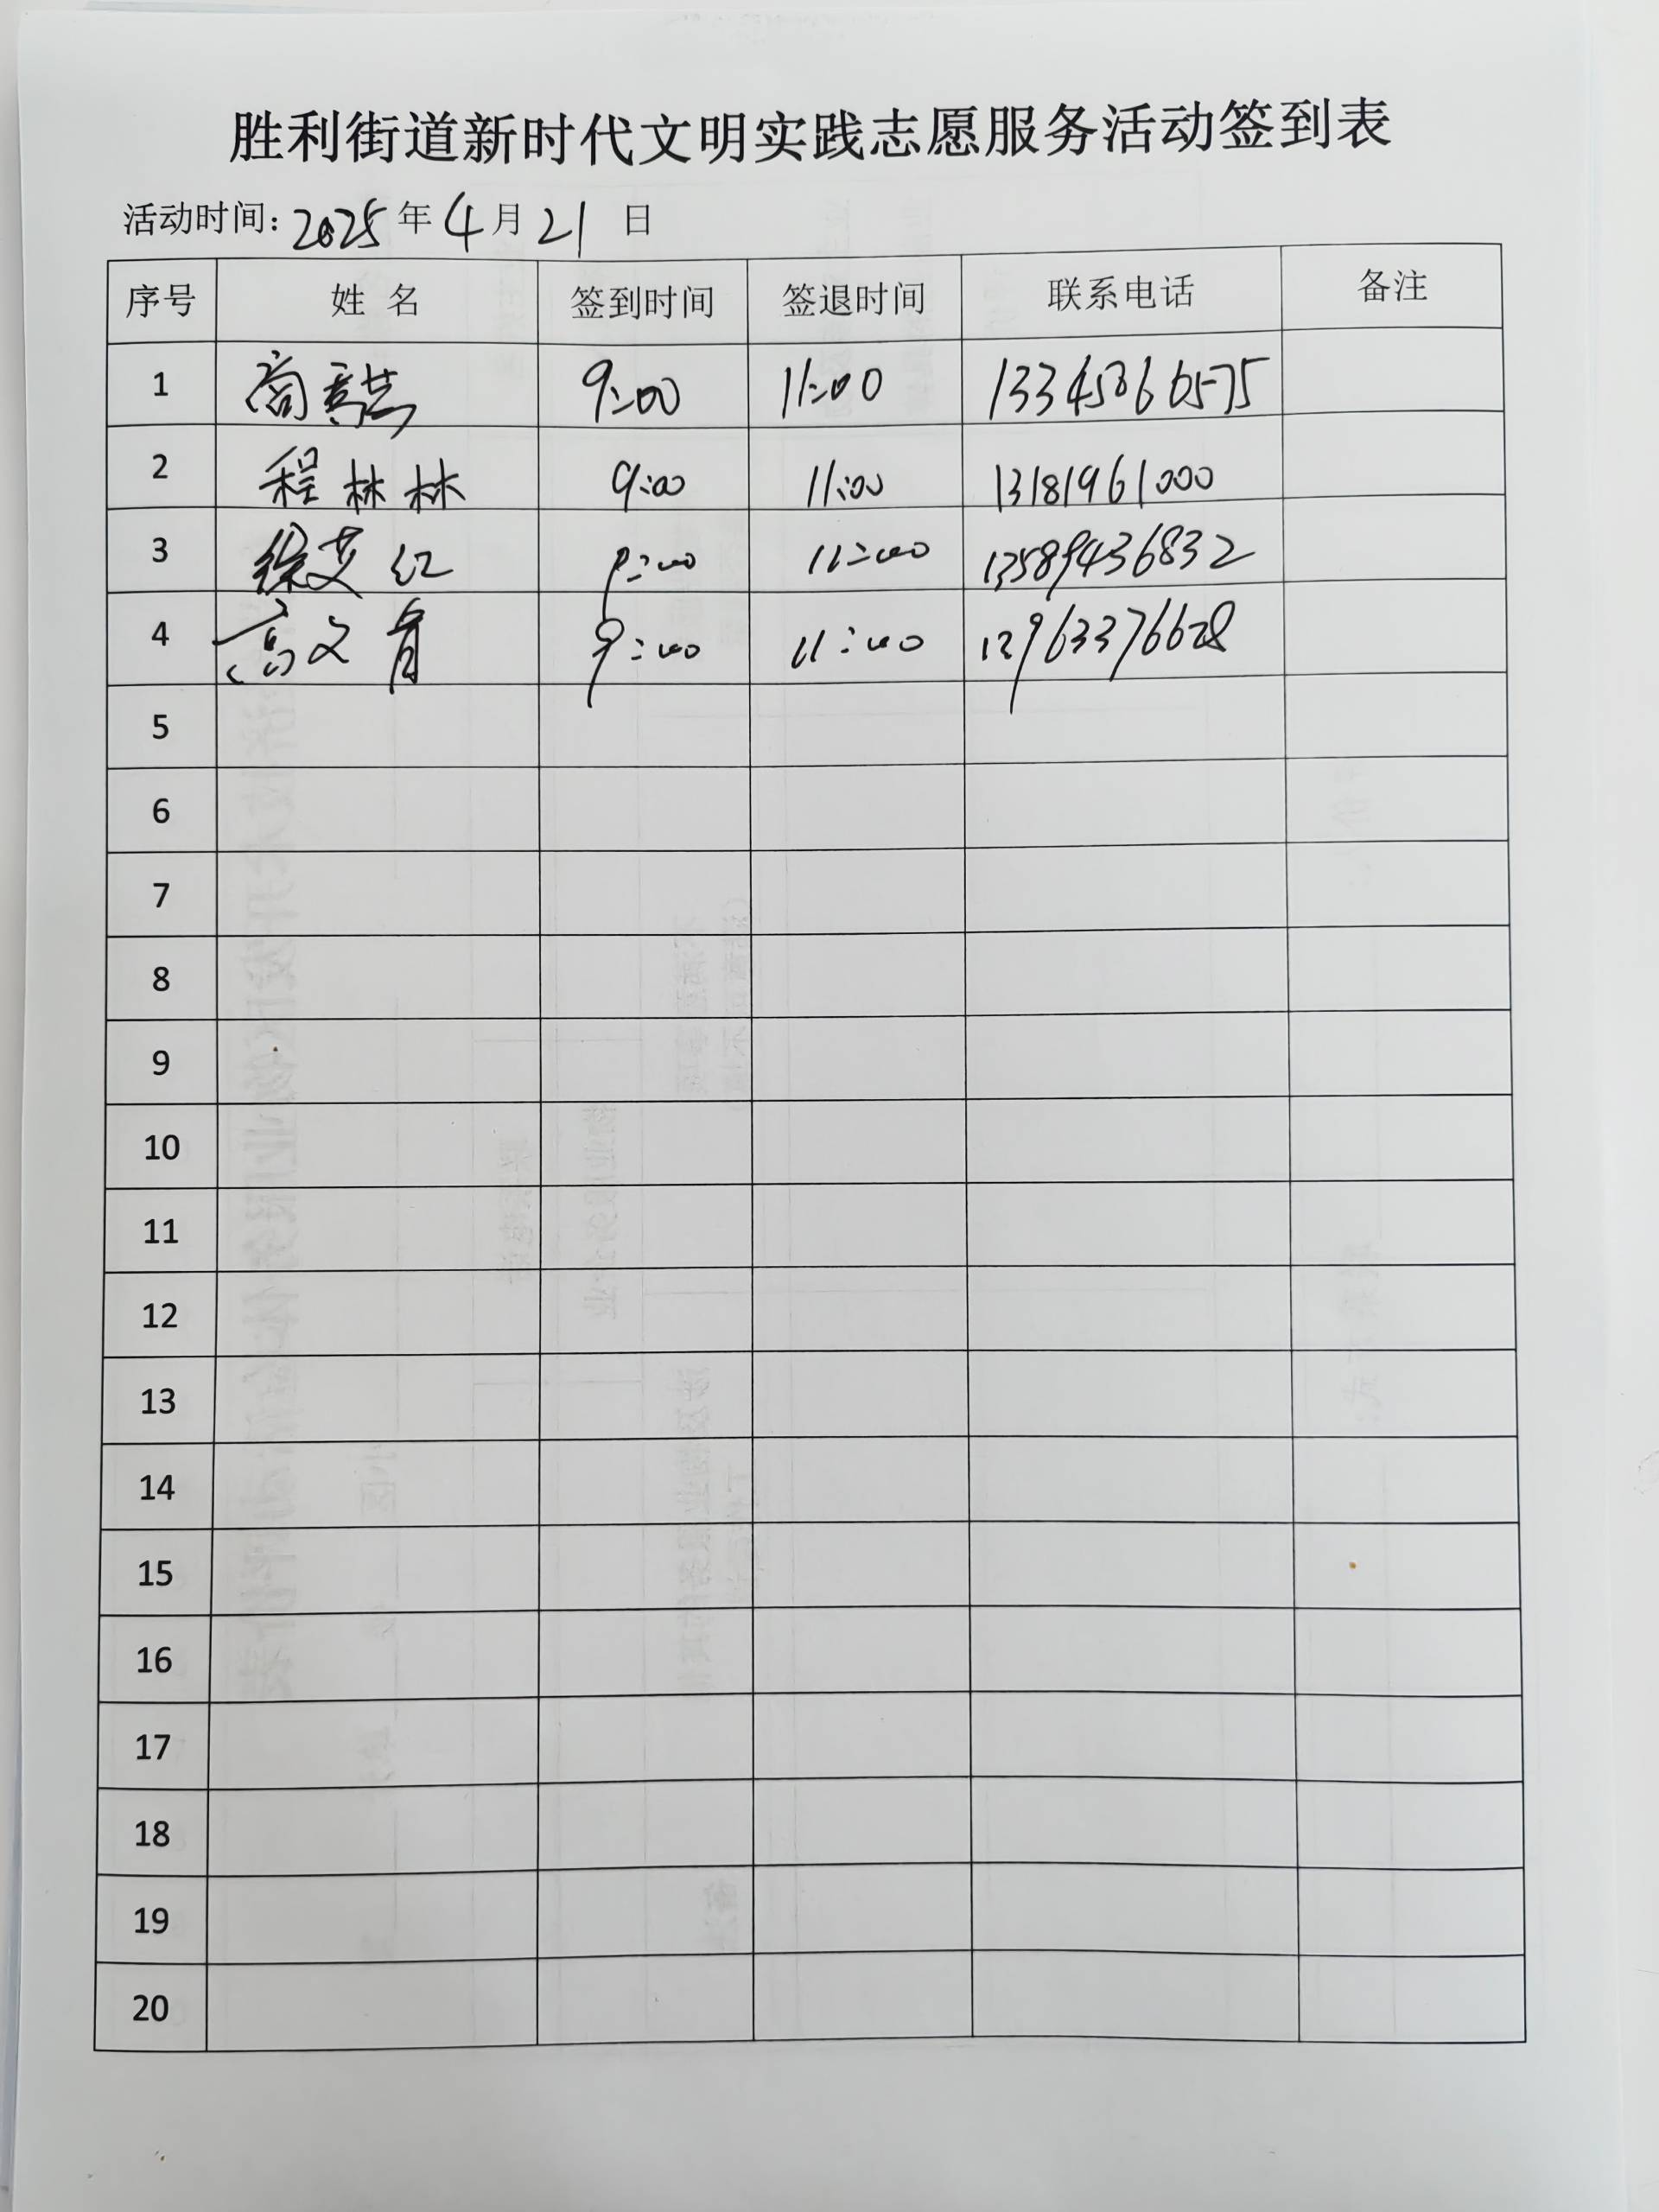 胜利街道新时代文明实践志愿服务活动签到表
活动时间: 2025 年 4 月 21 日
序号 姓 名 签到时间 签退时间 联系电话 备注
1 商 9:00 11:00
2 程林林 9:00 11:00 13181961000
3 徐艾红 9:00 11:00 13589436832
4 高文育 9:00 11:00
5
6
7
8
9
10
11
12
13
14
15
16
17
18
19
20